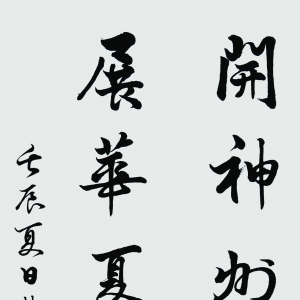 開神州
展華夏
壬辰夏日